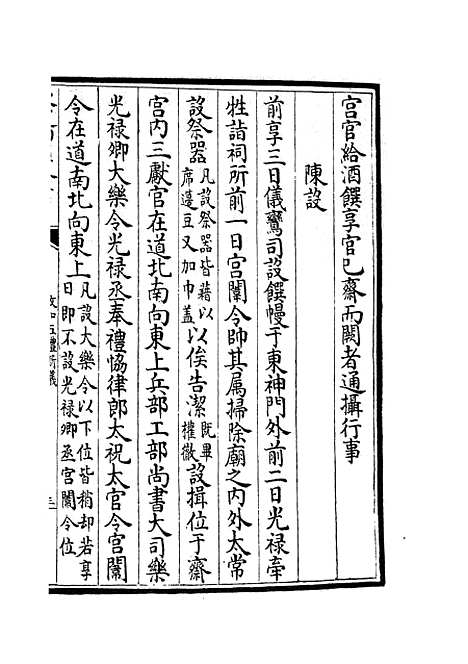 宫官給酒饌享官已齋而闕者通攝行事
陳設
前享三日儀鸞司設饌幔于東神門外前二日光禄牽
牲詣祠所前一日宫闈令帥其属掃除廟之内外太常
設祭器凡設祭器皆藉以席籩豆又加巾蓋以俟告潔既畢權徹設揖位于齋
宫内三獻官在道北南向東上兵部工部尚書大司樂
光禄卿大樂令光禄丞奉禮協律郎太祝太官令宫闈
令在道南北向東上凡設大樂令以下位皆稍却若享日即不設光禄卿丞宫闈令位
政和五禮新儀